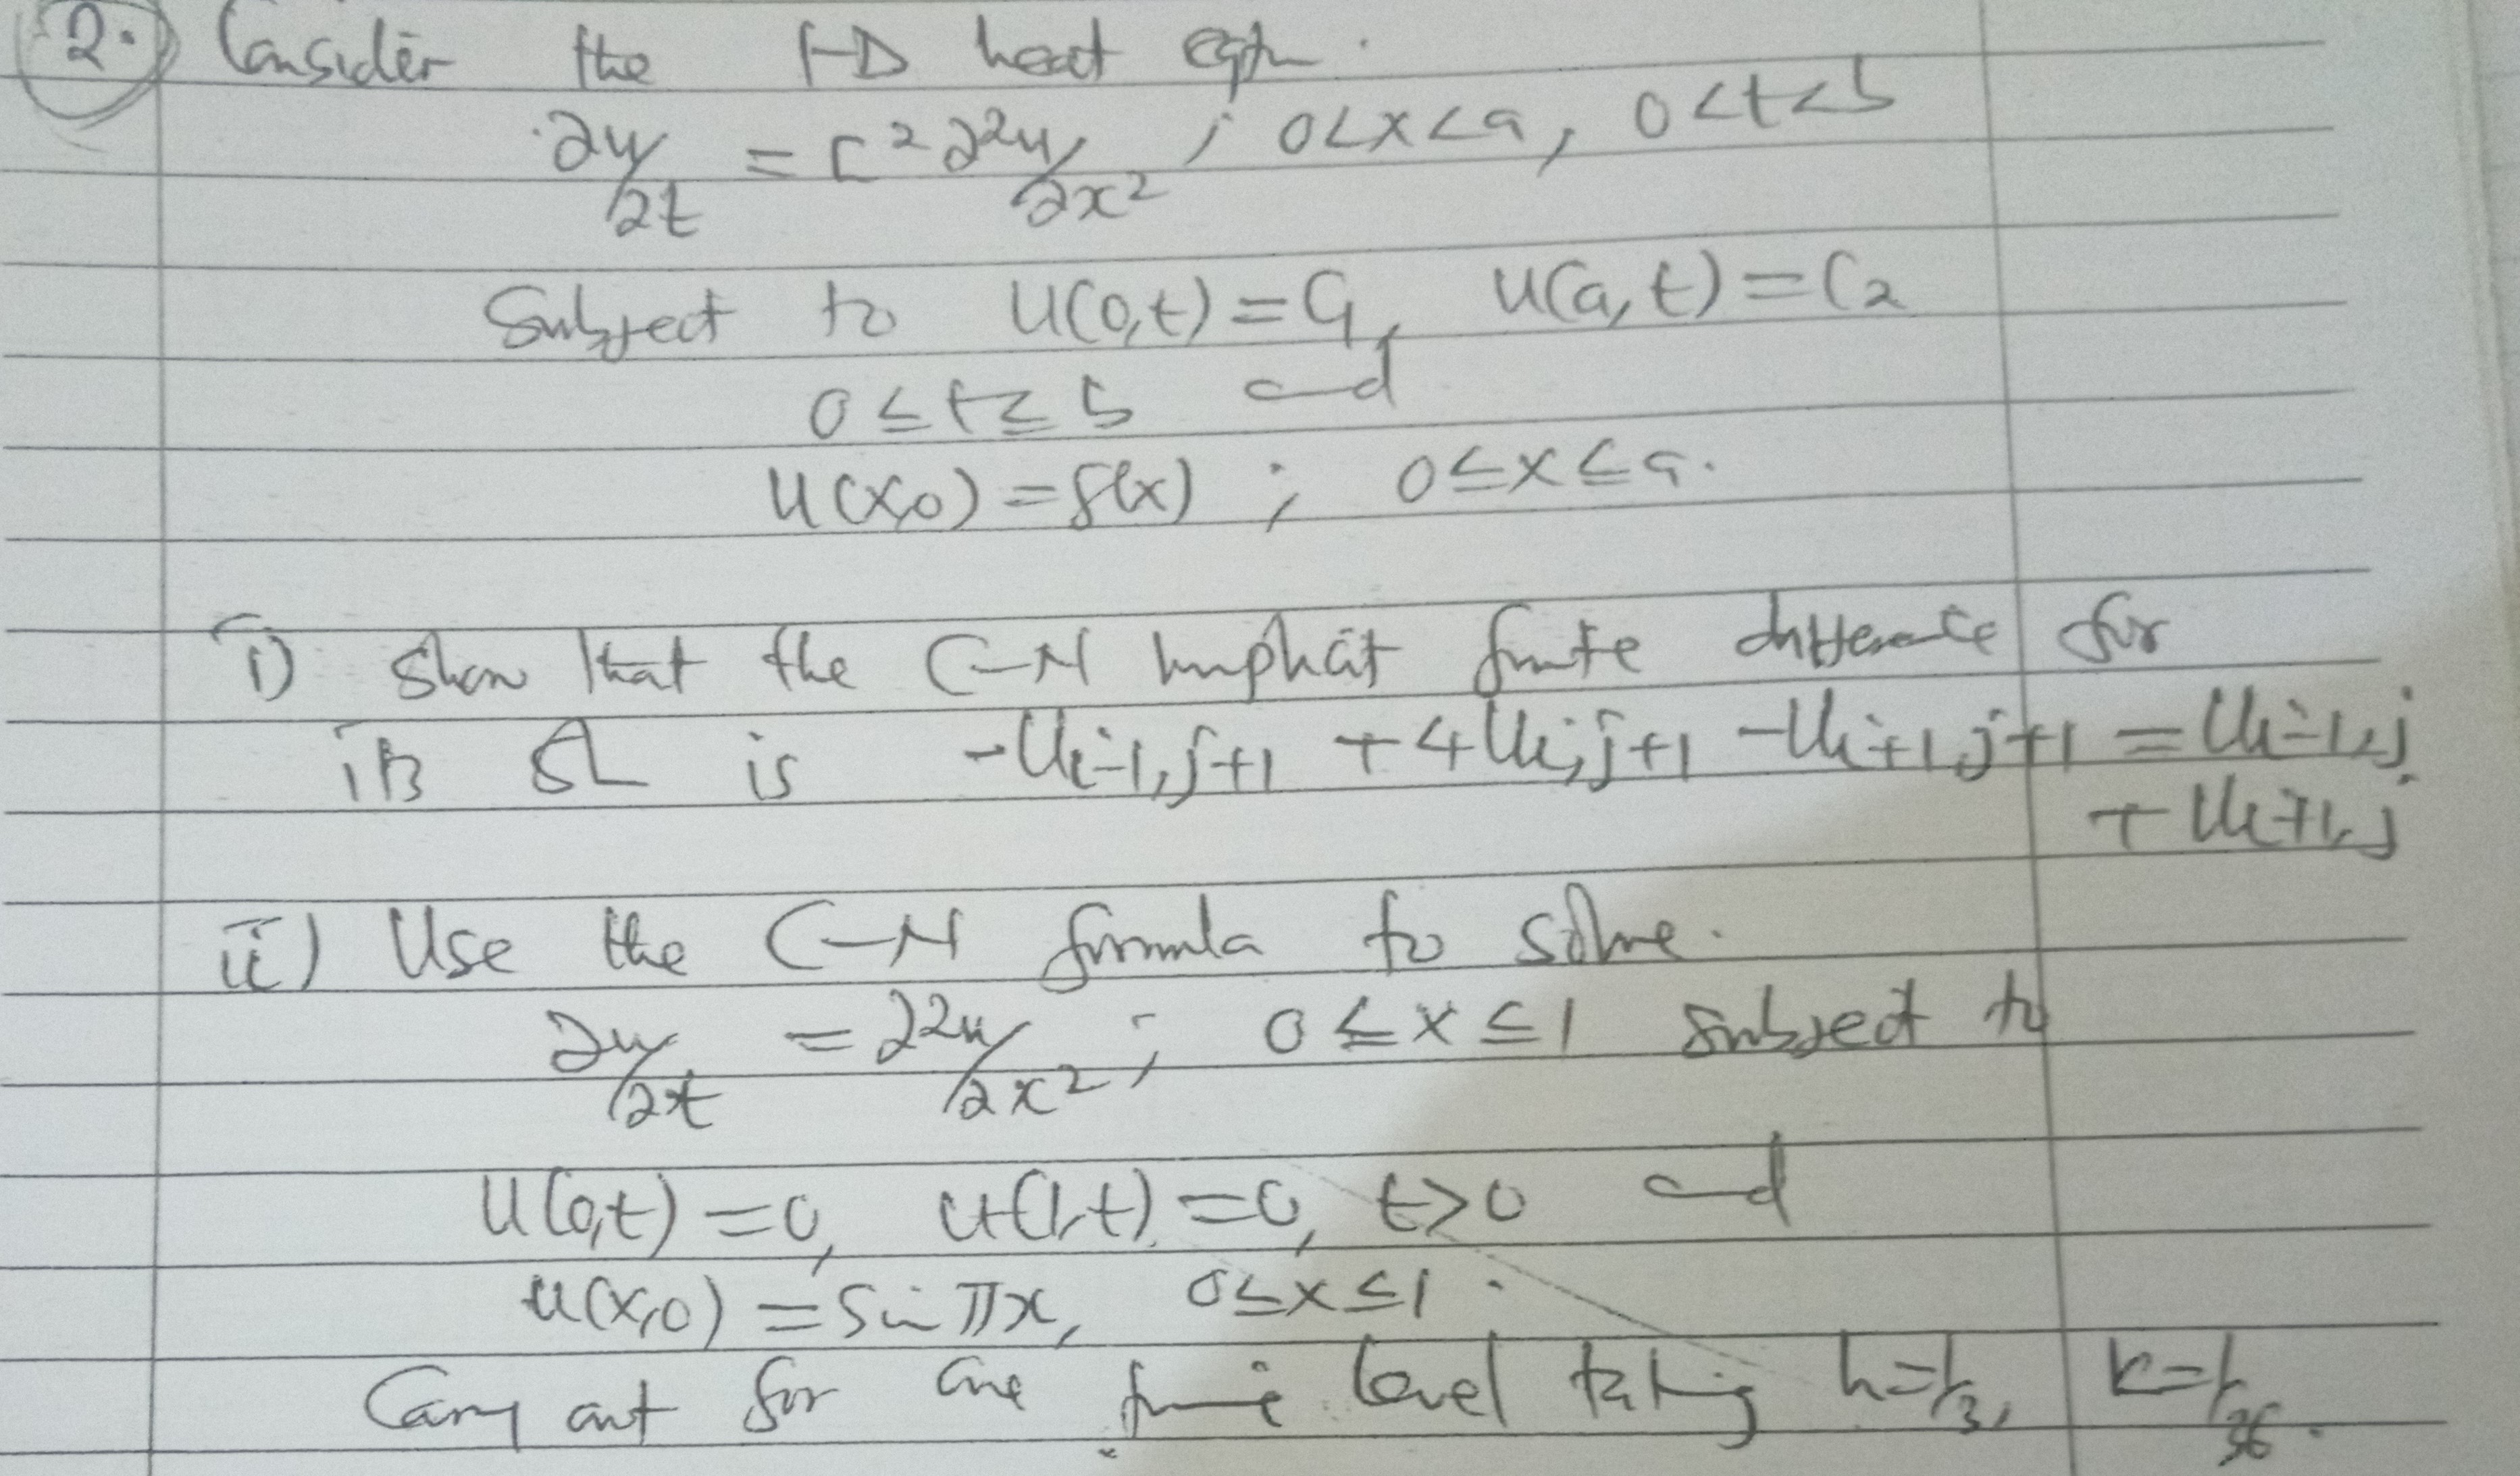 2. Consider the 1-D heat eqtn.
∂u/∂t = c² ∂²u/∂x² ; 0<x<a, 0<t<b
Subject to u(0,t) = C1, u(a,t) = C2
0 ≤ t ≤ b and
u(x,0) = f(x) ; 0 ≤ x ≤ a.
i) Show that the C-N Implicit finite difference for
its is -Ui-1,j+1 + 4Ui,j+1 - Ui+1,j+1 = Ui-1,j
+ Ui+1,j
ii) Use the C-N formula to solve.
∂u/∂t = ∂²u/∂x² ; 0 ≤ x ≤ 1 subject to
U(0,t) = 0, u(1,t) = 0, t>0 and
u(x,0) = Sin πx, 0≤x≤1.
Carry out for one time level taking h=1/3, k=1/36.